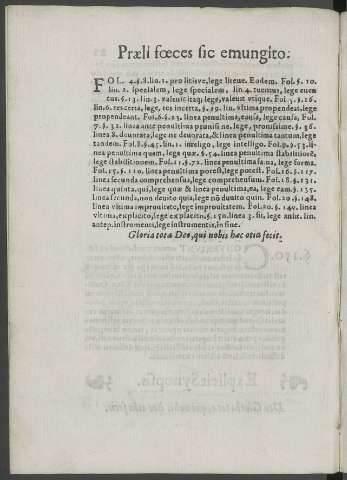 Præli fœces sic emungito.
FOL. 4.§.8.lin.2. pro litisve, lege liteue. Eodem. Fol.§. 10.
lin. 2. specialem, lege spetialem, lin.4. tuentus, lege euen
tus.§.13. lin.3. valeuit itaq; lege, valeuit vtique. Fol.5.§.26.
lin.6. res certa, lege, res incerta, §.29. lin. vltima propendeat, lege
propendeant. Fol.6.§.23. linea penultima, causā, lege causa. Fol.
7.§.32. linea ante penultima promisi ne, lege, promissine. §.36.
linea 8. deuorata, lege ne deuorata, & linea penultima tantum, lege
tandem. Fol.8.§.45. lin.1. intelligo, lege intelligo. Fol.9.§.53. li-
nea penultima quem, lege quæ. §.54. linea penultima
lege stabilitionem. Fol.11.§.72. linea penultima sa na, lege forma.
Fol.15.§.110. linea penultima potest, lege potest. Fol.16.§.117.
linea secunda comprehensum, lege comprehensum. Fol.18.§.131.
linea quinta, qui, lege quæ & linea penultima, ea, lege eam.§.135.
linea secunda, non deuito quia, lege nō dunto quin. Fol.20.§.148.
linea vltima improuitatem, lege improuitatem. Fol.20.§. 140. linea
vltima, explicito, lege ex placito.§.150. linea 3. sit, lege antit. lin.
antep. instrumenti, lege instrumentis, in fine.
Gloria tota Deo, qui nobis hæc otia fecit.